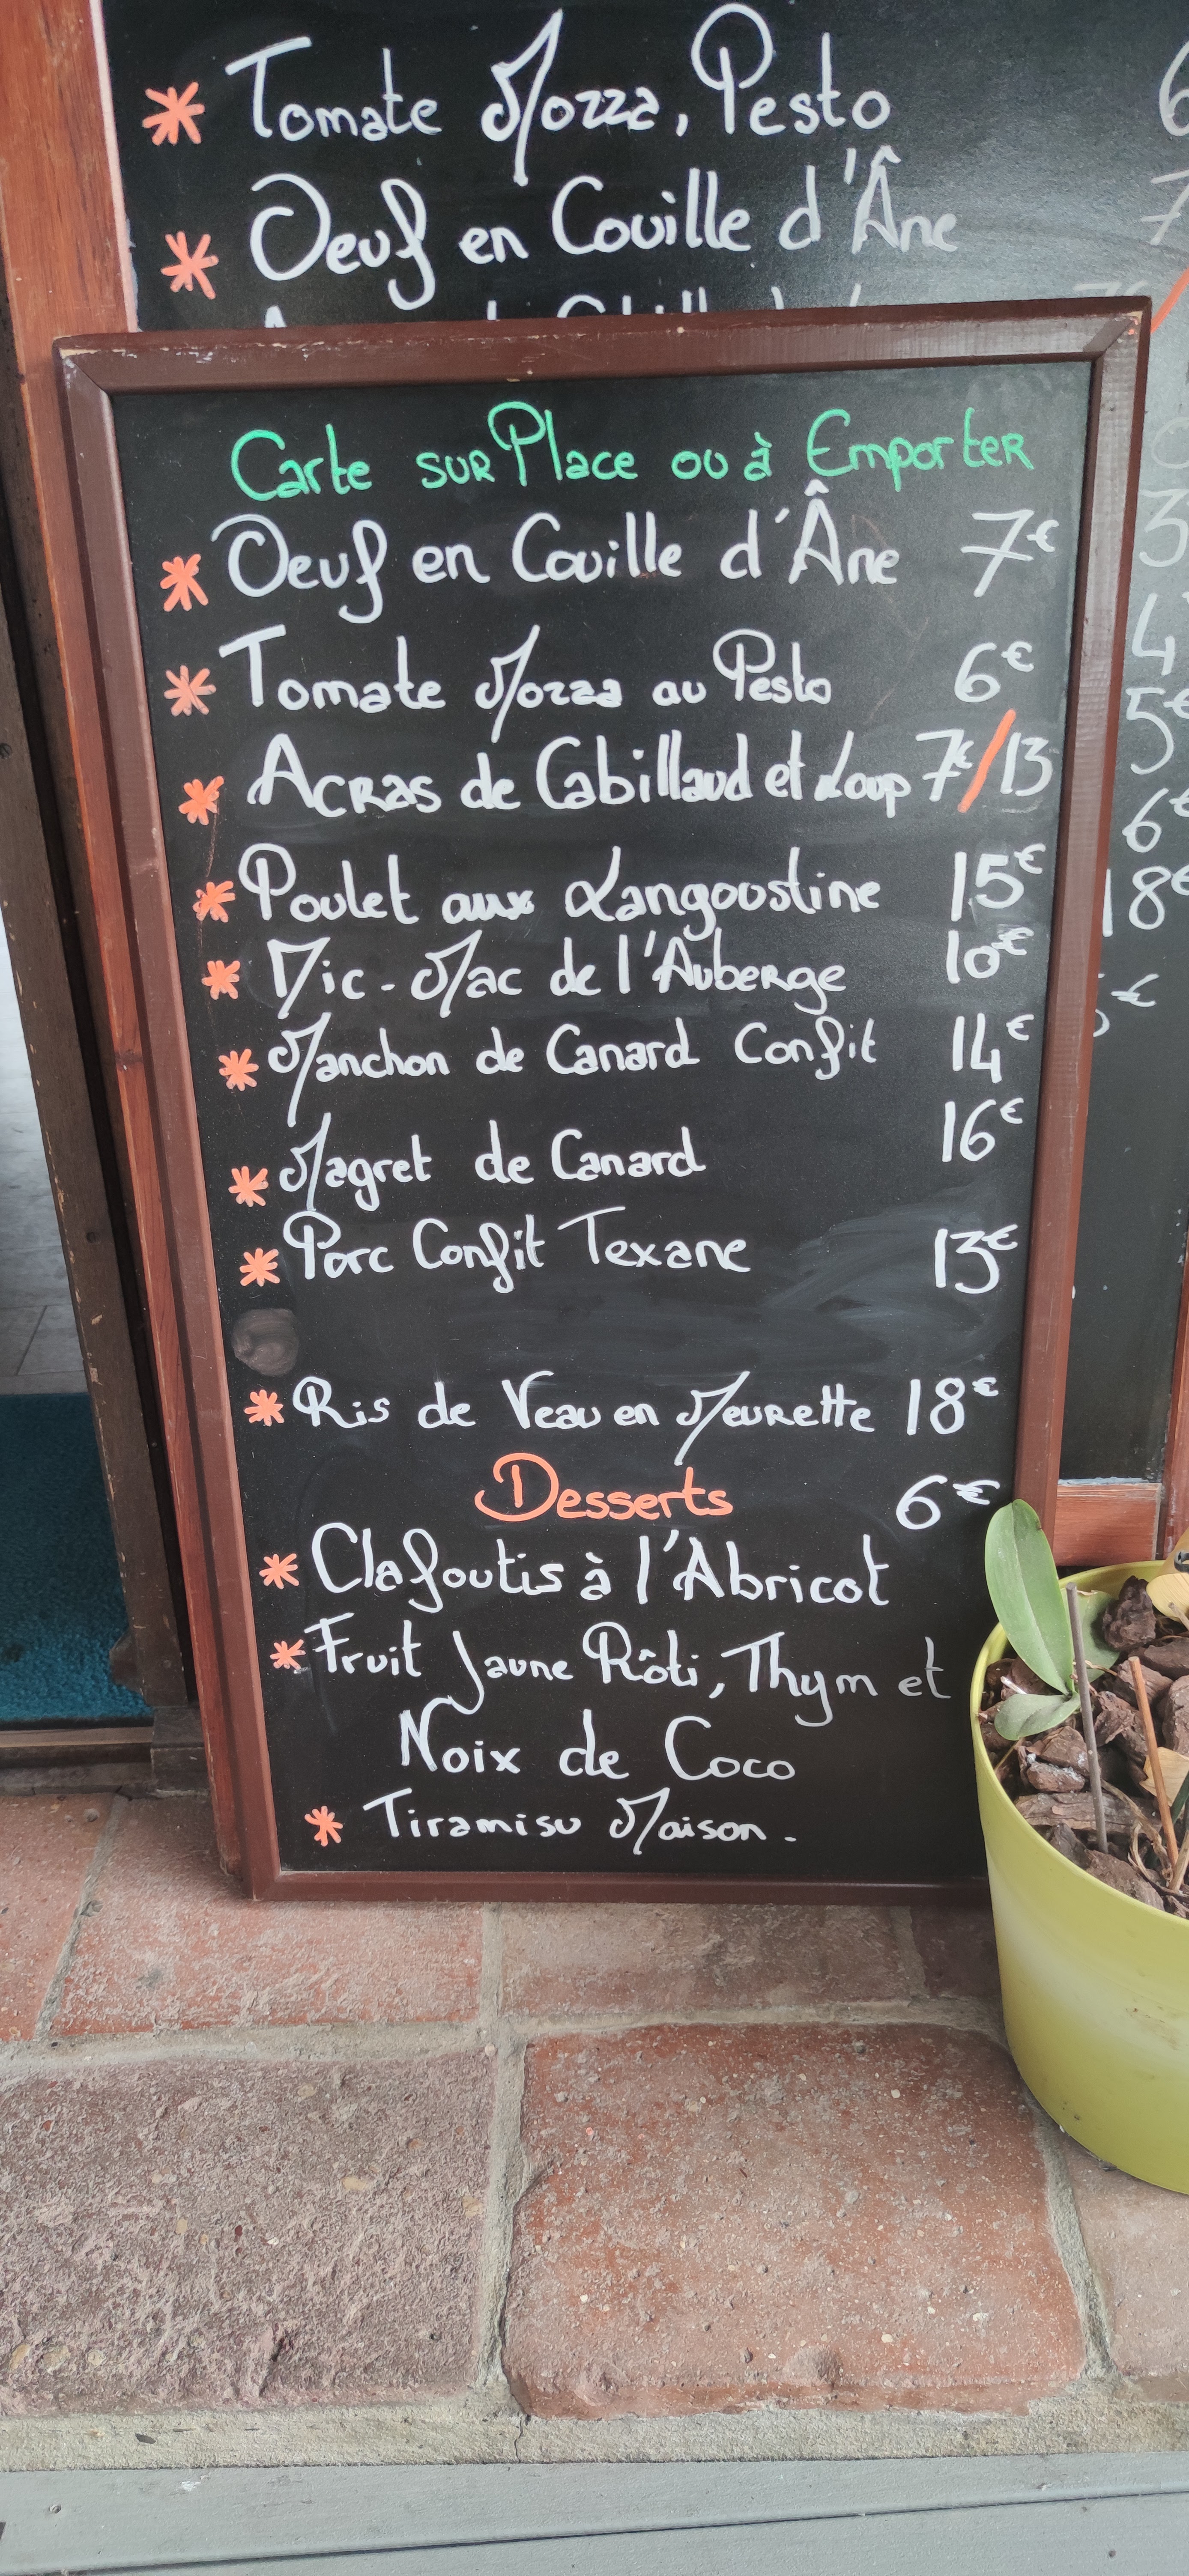 * Tomate Mozza, Pesto 6
* Oeuf en Couille d'Âne 7
Carte sur Place ou à Emporter
* Oeuf en Couille d'Âne 7€
* Tomate Mozza au Pesto 6€
* Acras de Cabillaud et Loup 7€/13
* Poulet aux Langoustine 15€
* Mic-Mac de l'Auberge 10€
* Manchon de Canard Confit 14€
* Magret de Canard 16€
* Porc Confit Texane 13€
* Ris de Veau en Meurette 18€
Desserts 6€
* Clafoutis à l'Abricot
* Fruit Jaune Rôti, Thym et
Noix de Coco
* Tiramisu Maison.
3
4
5€
6€
18€
€